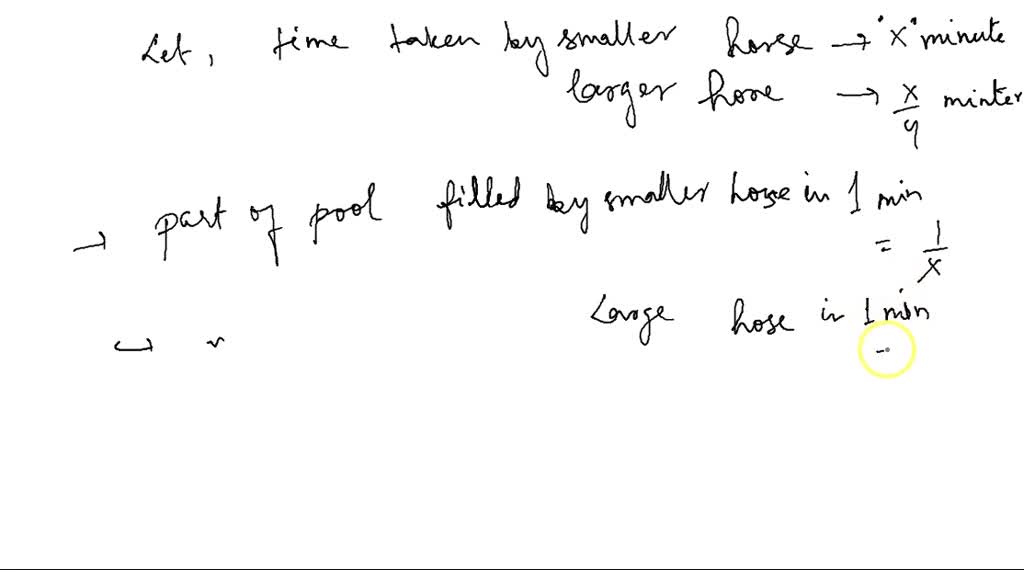 Let, time taken by smaller horse → "x" minute
larger hose → x/4 minter
→ part of pool filled by smaller hose in 1 min
= 1/x
Large hose in 1 min